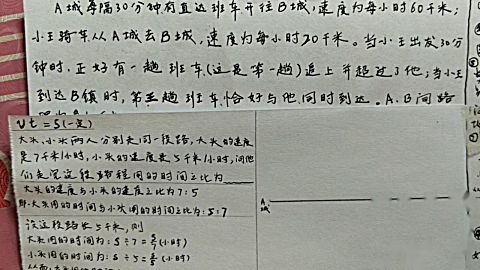 A城每隔30分钟有直达班车开往B城,速度为每小时60千米;
小王骑车从A城去B城,速度为每小时20千米。当小王出发30分
钟时,正好有一趟班车(这是第一趟)追上并超过了他;当小王
到达B镇时,第三趟班车恰好与他同时到达。A、B间路
vt=S(一定)
大头、小头两人分别走同一段路,大头的速度
是7千米/小时,小头的速度是5千米/小时,问他
们走完这段路程用的时间之比为
大头的速度与小头的速度之比为7:5
大头用的时间与小头用的时间之比为:5:7
设这段路长S千米,则
大头用的时间为:S÷7=S/7(小时)
小头用的时间为:S÷5=S/5(小时)
A
城